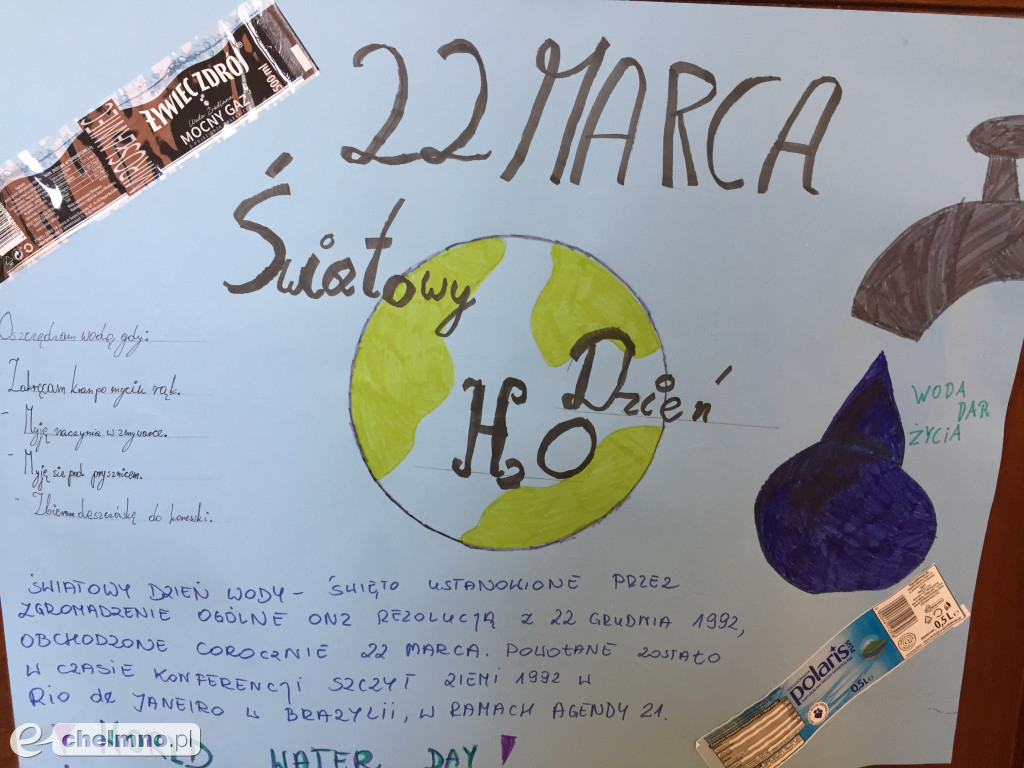 22 MARCA
Światowy
Dzień
H2O
ŻYWIEC ZDRÓJ
MOCNY GAZ
500ml
Oszczędzam wodę, gdy:
Zakręcam kran po myciu rąk.
- Myję naczynia w zmywarce.
- Myję się pod prysznicem.
- Zbieram deszczówkę do konewki.
WODA
DAR
ŻYCIA
ŚWIATOWY DZIEŃ WODY - ŚWIĘTO USTANOWIONE PRZEZ
ZGROMADZENIE OGÓLNE ONZ REZOLUCJĄ Z 22 GRUDNIA 1992,
OBCHODZONE COROCZNIE 22 MARCA. POWOŁANE ZOSTAŁO
W CZASIE KONFERENCJI SZCZYT ZIEMI 1992 W
RIO de JANEIRO W BRAZYLII, W RAMACH AGENDY 21.
WORLD WATER DAY!
polaris
0,5L e
0,5L
e-chelmno.pl